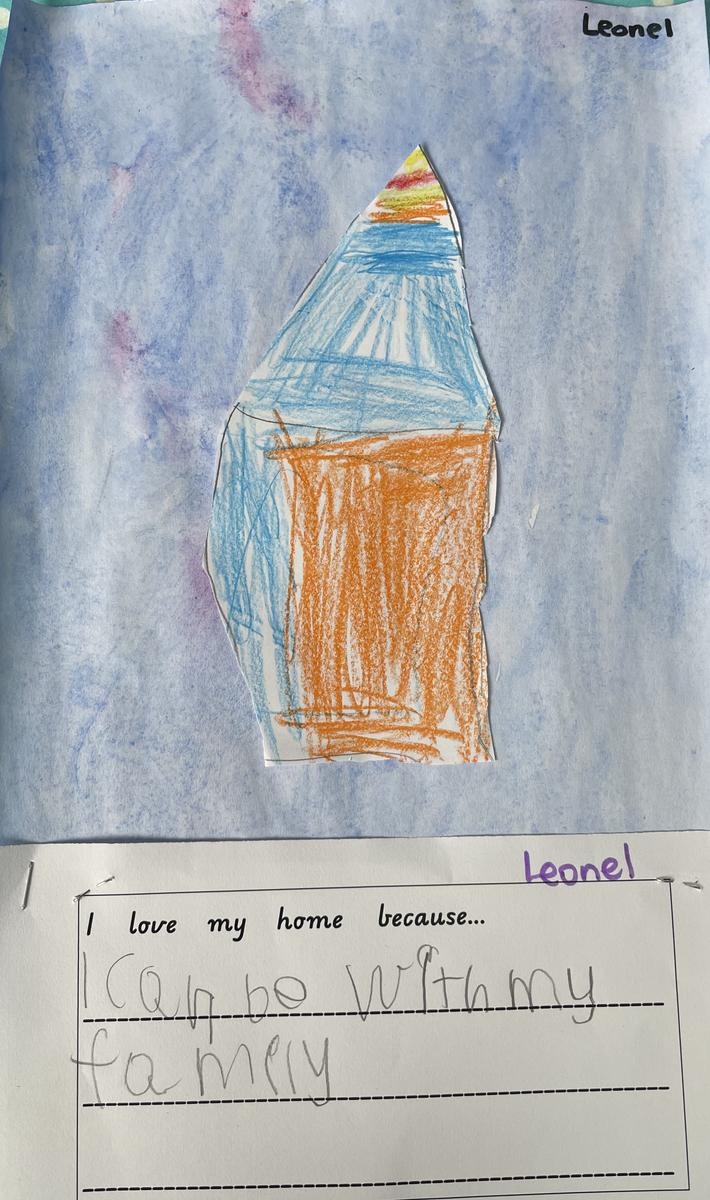 Leonel
Leonel
I love my home because...
I can be with my
family